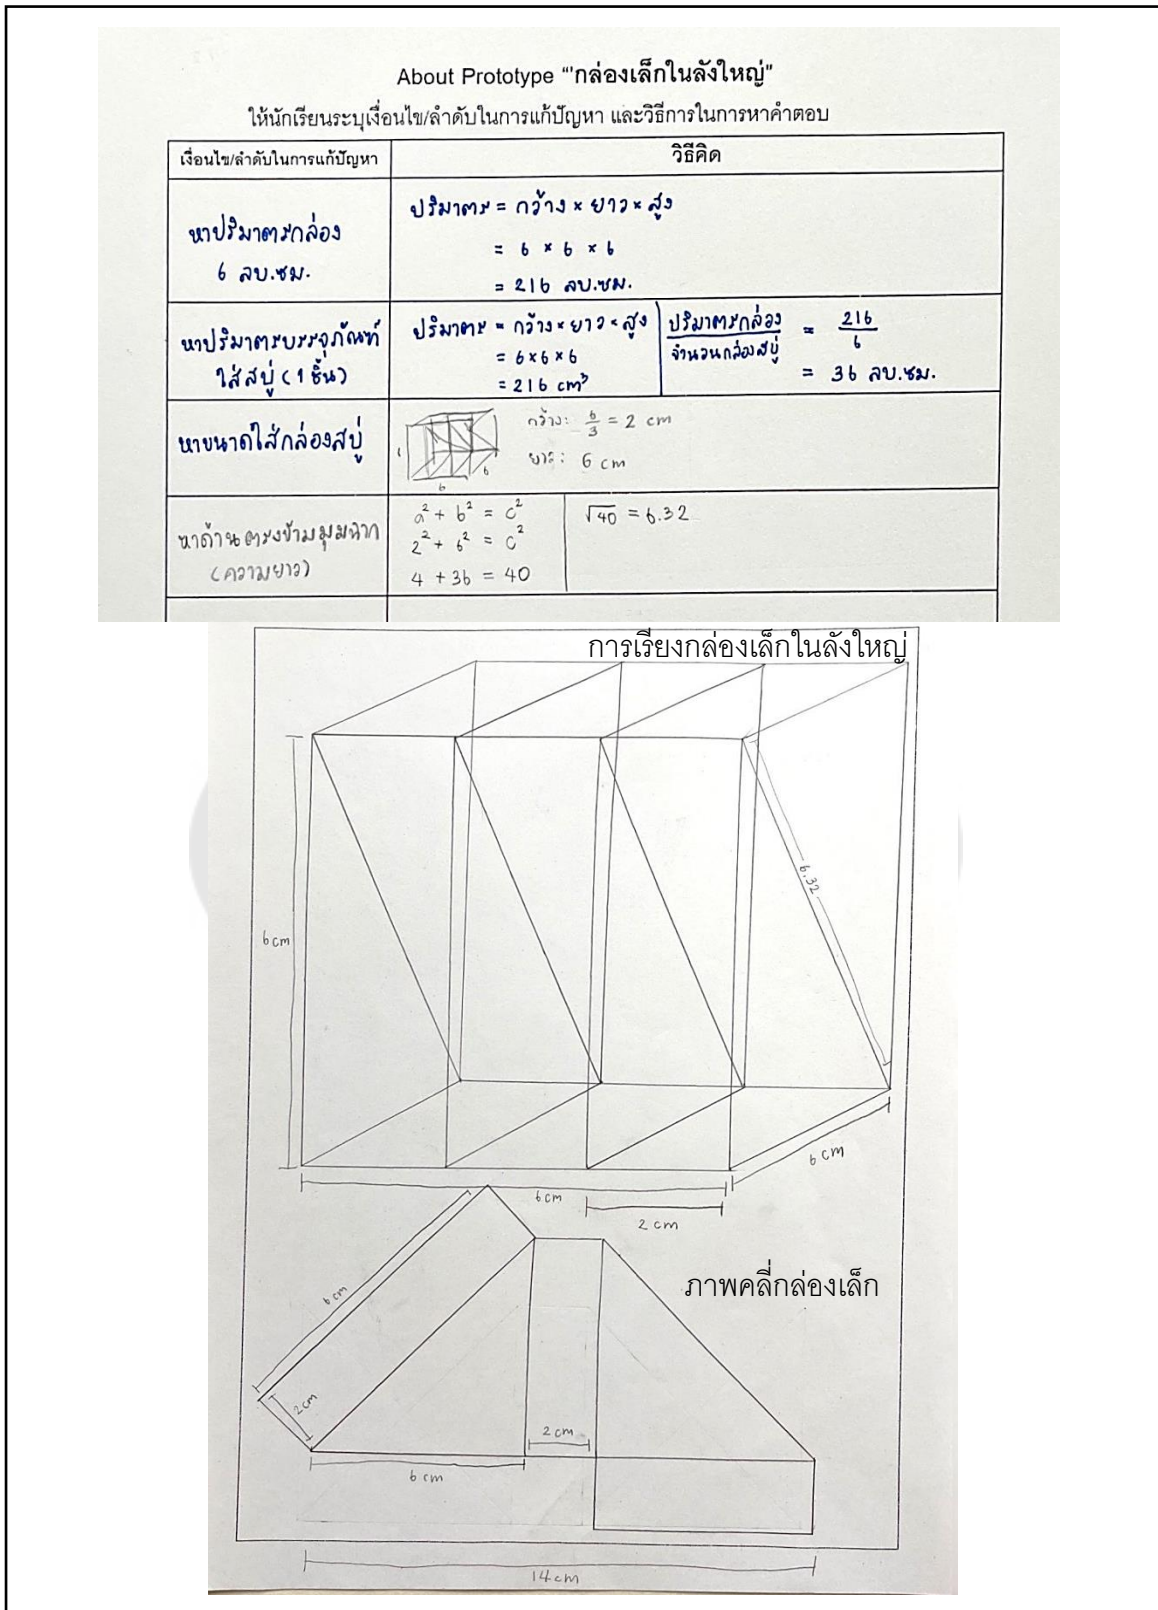 About Prototype "'กล่องเล็กในลังใหญ่"
ให้นักเรียนระบุเงื่อนไข/ลำดับในการแก้ปัญหา และวิธีการในการหาคำตอบ
เงื่อนไข/ลำดับในการแก้ปัญหา
วิธีคิด
หาปริมาตรกล่อง
6 ลบ.ซม.
ปริมาตร = กว้าง × ยาว × สูง
= 6 × 6 × 6
= 216 ลบ.ซม.
หาปริมาตรบรรจุภัณฑ์
ใส่สบู่ (1 ชิ้น)
ปริมาตร = กว้าง × ยาว × สูง
= 6×6×6
= 216 cm³
ปริมาตรกล่อง = 216
จำนวนกล่องสบู่ 6
= 36 ลบ.ซม.
หาขนาดใส่กล่องสบู่
6
6
กว้าง: 6/3 = 2 cm
ยาว: 6 cm
หาด้านตรงข้ามมุมฉาก
(ความยาว)
a² + b² = c²
2² + 6² = c²
4 + 36 = 40
√40 = 6.32
การเรียงกล่องเล็กในลังใหญ่
6.32
6 cm
6 cm
6 cm
2 cm
ภาพคลี่กล่องเล็ก
6 cm
2 cm
2 cm
6 cm
14 cm